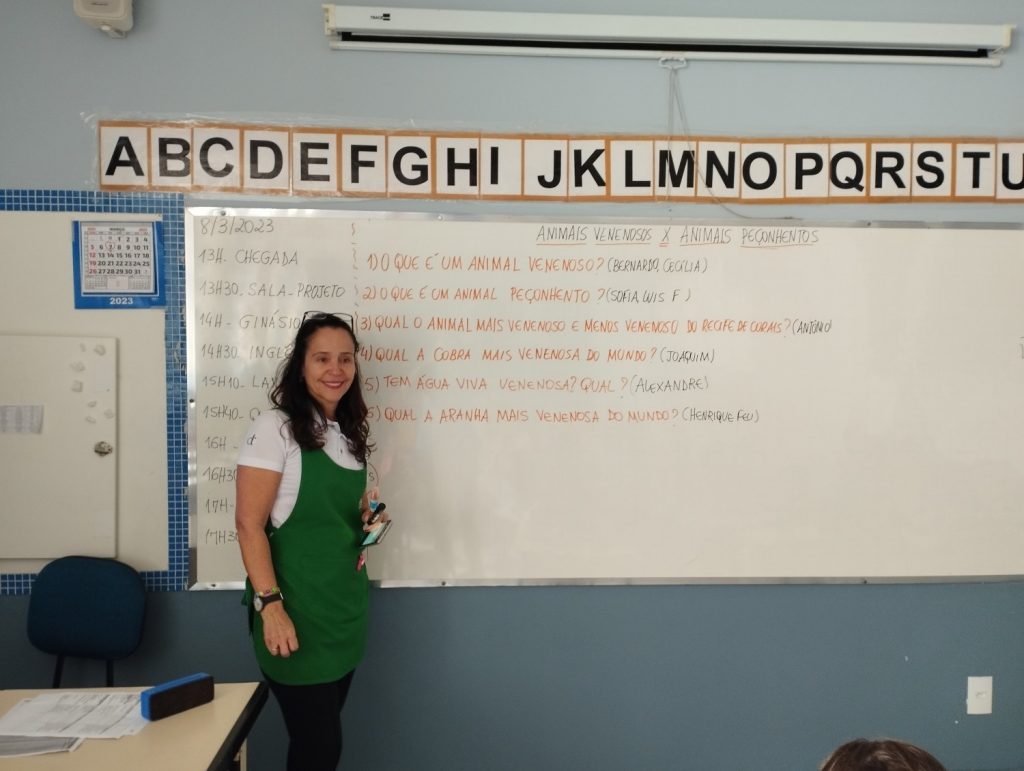 A B C D E F G H I J K L M N O P Q R S T U
MARÇO
1 2 3 4
5 6 7 8 9 10 11
12 13 14 15 16 17 18
19 20 21 22 23 24 25
26 27 28 29 30 31
2023
8/3/2023
13H. CHEGADA
13H30_ SALA_PROJETO
14H - GINÁSIO
14H30_ INGL
15H10_
15H40_
16H -
16H30
17H-
17H30
S)
ANIMAIS VENENOSOS X ANIMAIS PEÇONHENTOS
1) O QUE É UM ANIMAL VENENOSO? (BERNARDO, CECÍLIA)
2) O QUE É UM ANIMAL PEÇONHENTO? (SOFIA, LUIS F)
3) QUAL O ANIMAL MAIS VENENOSO E MENOS VENENOSO DO RECIFE DE CORAIS? (ANTÔNIO)
4) QUAL A COBRA MAIS VENENOSA DO MUNDO? (JOAQUIM)
5) TEM ÁGUA VIVA VENENOSA? QUAL? (ALEXANDRE)
6) QUAL A ARANHA MAIS VENENOSA DO MUNDO? (HENRIQUE FEU)